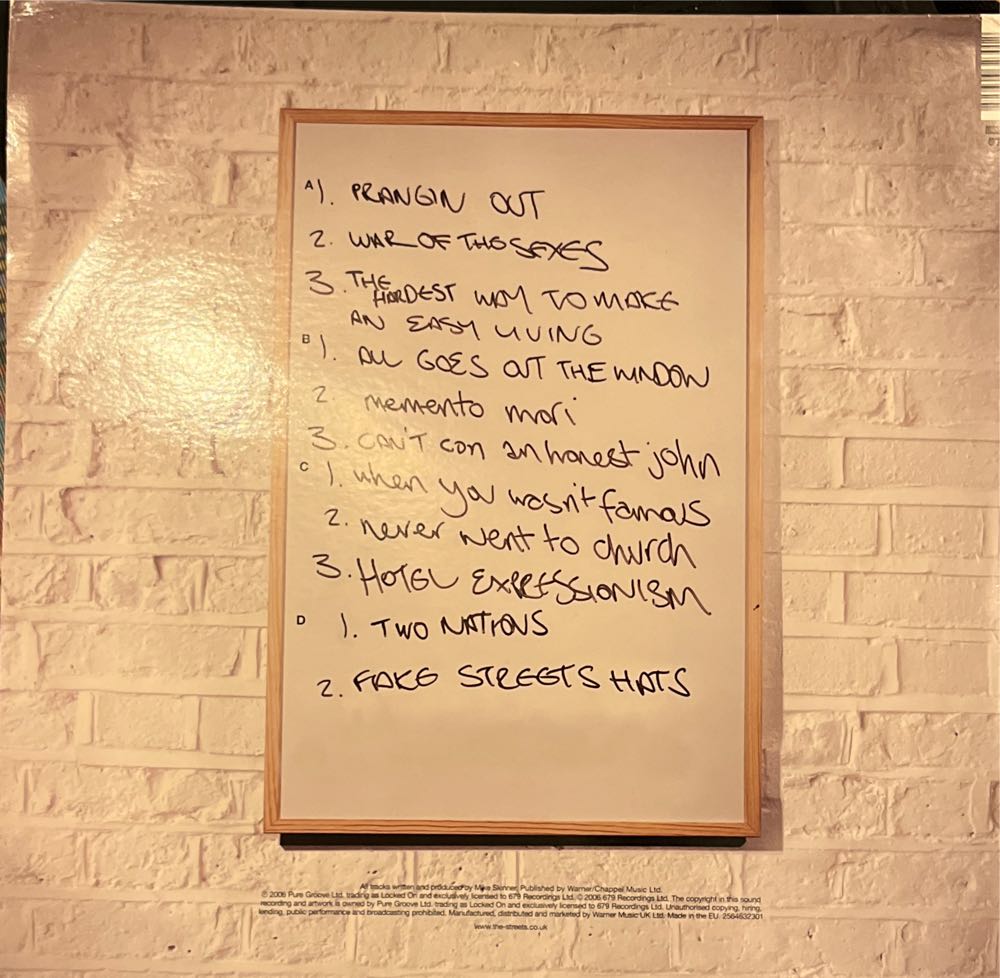 A 1. PRANGIN OUT
2. WAR OF THE SEXES
3. THE
HARDEST WAY TO MAKE
AN EASY LIVING
B 1. ALL GOES OUT THE WINDOW
2 memento mori
3. CAN'T con an honest john
C 1. when you wasn't famous
2. never went to church
3. HOTEL EXPRESSIONISM
D 1. TWO NATIONS
2. FAKE STREETS HATS
All tracks written and produced by Mike Skinner. Published by Warner/Chappel Music Ltd.
℗ 2006 Pure Groove Ltd. trading as Locked On and exclusively licensed to 679 Recordings Ltd. © 2006 679 Recordings Ltd. The copyright in this sound
recording and artwork is owned by Pure Groove Ltd. trading as Locked On and exclusively licensed to 679 Recordings Ltd. Unauthorised copying, hiring,
lending, public performance and broadcasting prohibited. Manufactured, distributed and marketed by Warner Music UK Ltd. Made in the EU. 2564632301
www.the-streets.co.uk